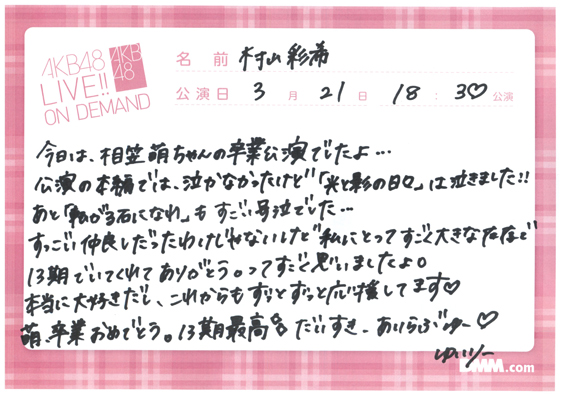 AKB48
LIVE!!
ON DEMAND
AKB
48
名前 村山彩希
公演日 3月21日 18:30♡公演
今日は、相笠萌ちゃんの卒業公演でしたよ…
公演の本編では、泣かなかったけど「光と影の日々」は泣きました!!
あと「転がる石になれ」もすごい号泣でした…
すっごい仲良しだったわけじゃないけど私にとってすごく大きな存在で
13期でいてくれてありがとう。ってすごく思いましたよ。
本当に大好きだし、これからもずっとずっと応援してます♡
萌、卒業おめでとう。13期最高 だいすき、あいらぶゆー♡
ゆいりー
DMM.com